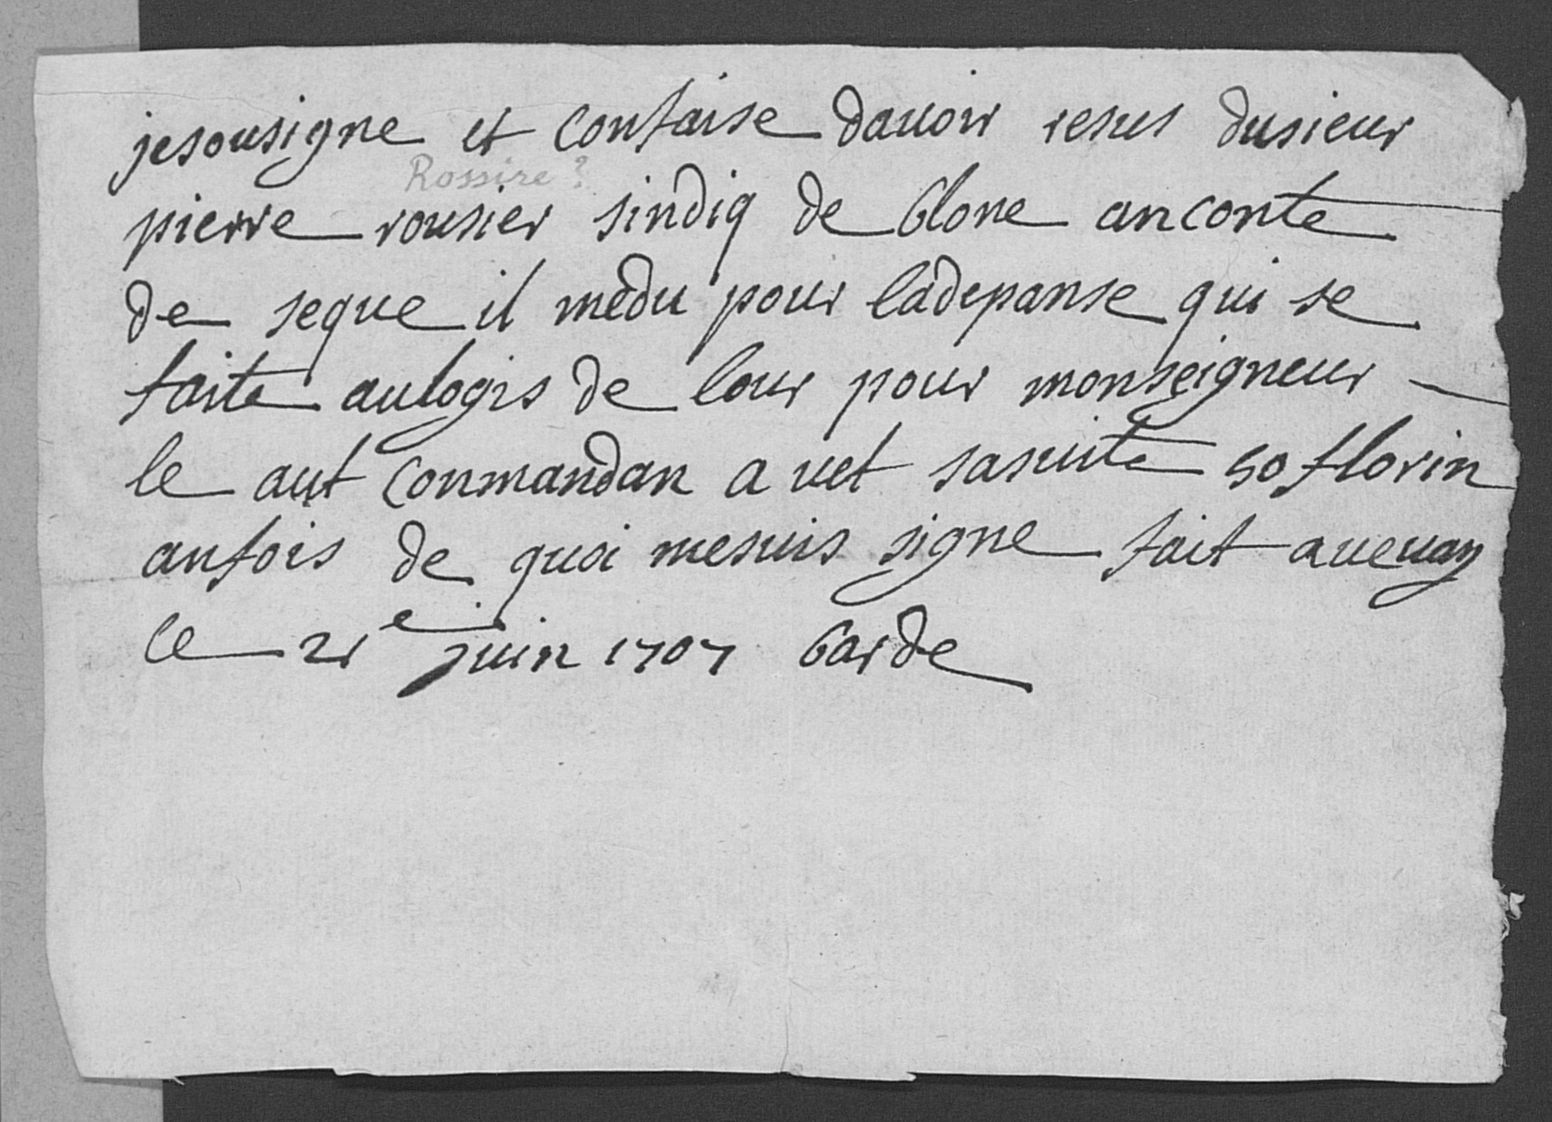 jesousigne et confaise dauoir resus dusieur
Rossire?
pierre rousier sindiq de blone anconte
de seque il medu pour ladepanse qui se
faite aulogis de lour pour monseigneur
le aut conmandan a vet sasuite 50 florin
anfois de quoi mesuis signe fait aveuay
le 21e juin 1707 barde